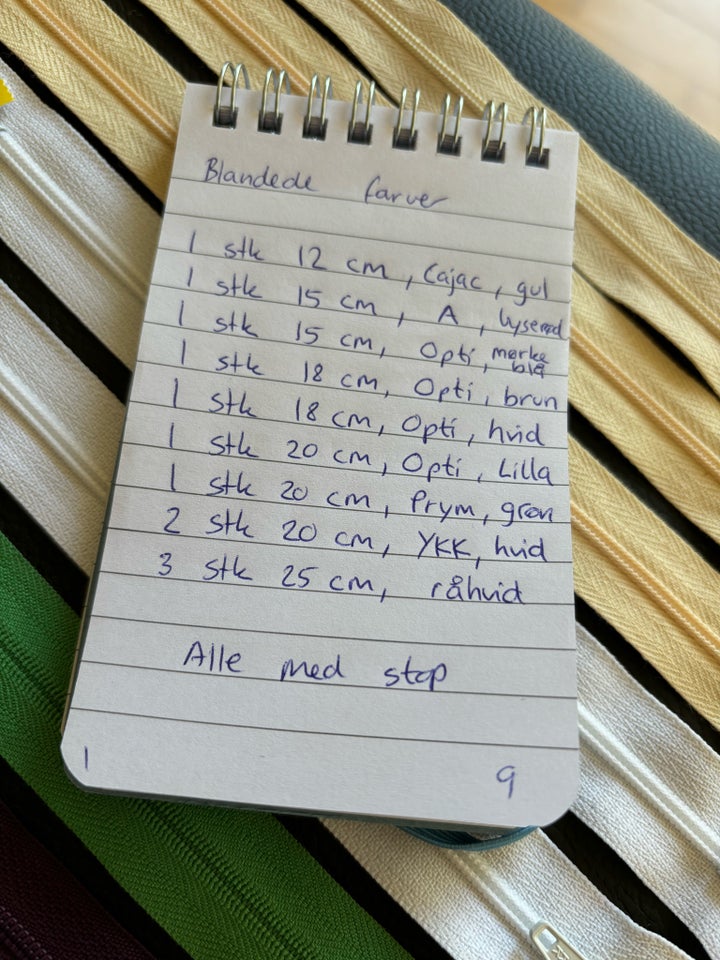 Blandede farver
1 stk 12 cm, Cajac, gul
1 stk 15 cm, A, lyserød
1 stk 15 cm, Opti, mørke blå
1 stk 18 cm, Opti, brun
1 stk 18 cm, Opti, hvid
1 stk 20 cm, Opti, Lilla
1 stk 20 cm, Prym, grøn
2 stk 20 cm, YKK, hvid
3 stk 25 cm, råhvid
Alle med stop
1 9